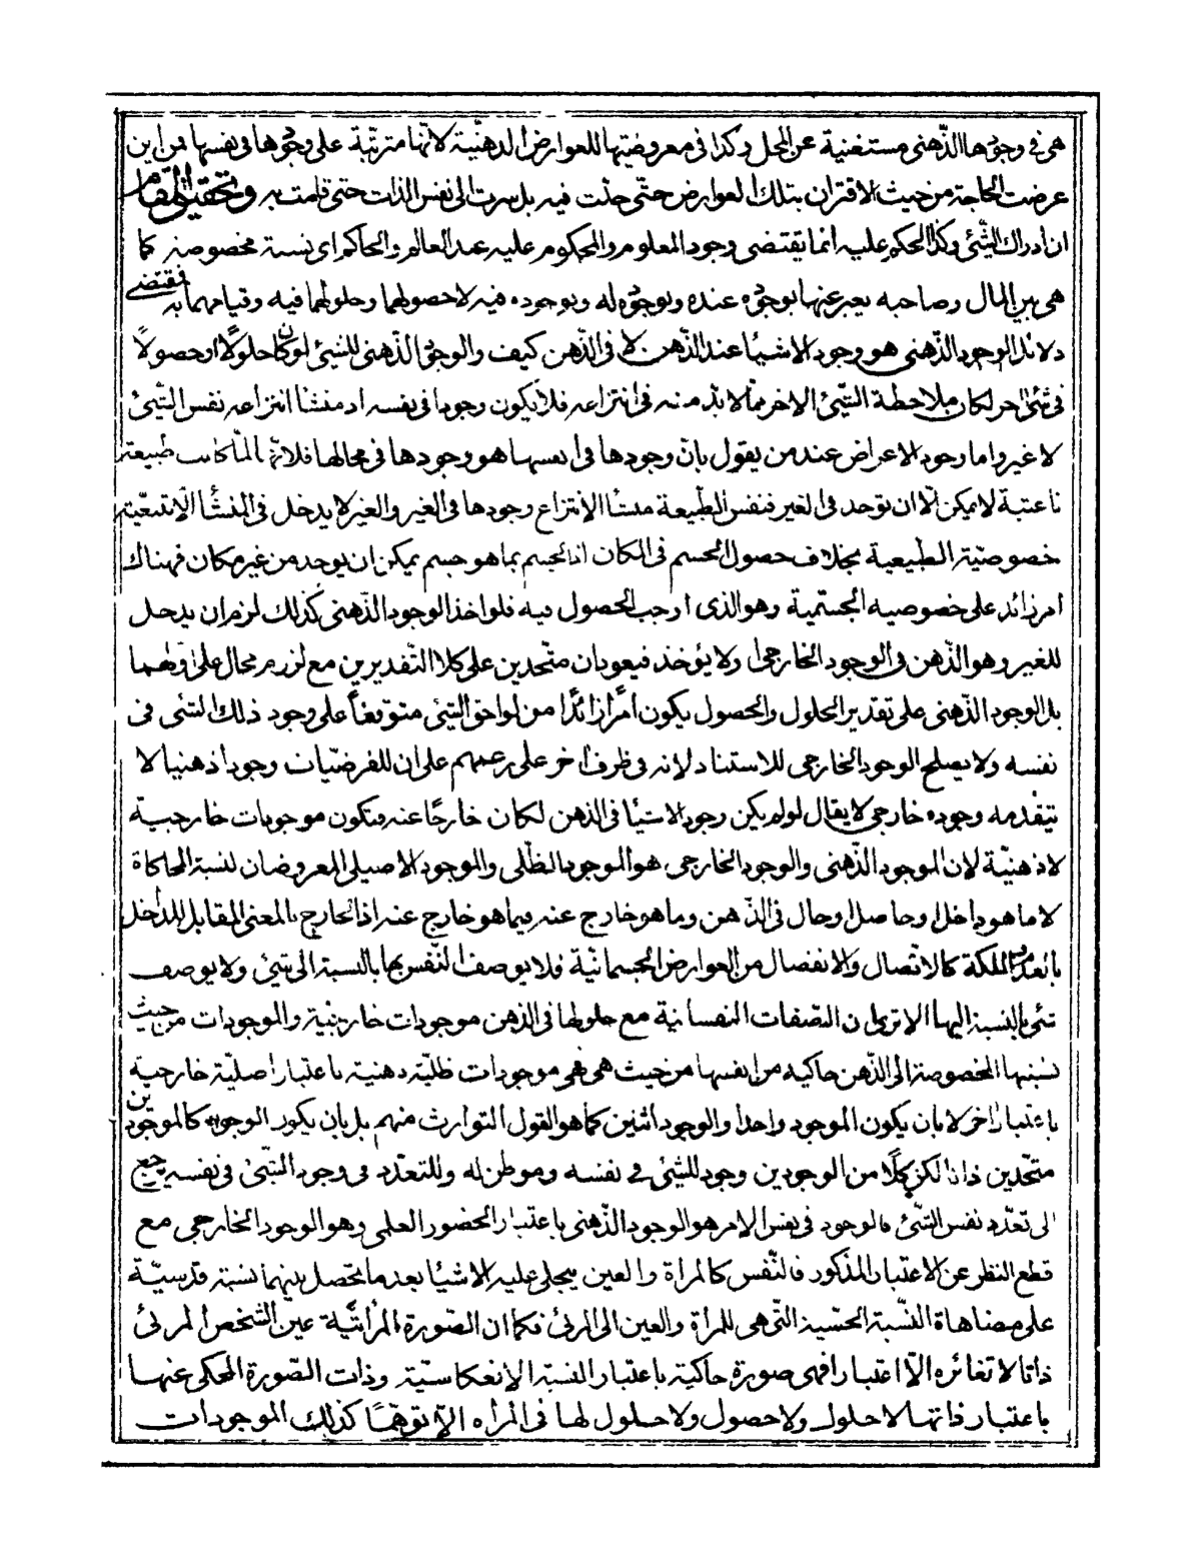 هى فى وجودها الذّهنى مستغنية عن المحل وكذا فى معروضيتها للعوارض الذهنيّة لانّها مترتبّة على وجودها فى نفسها فمن اين
عرضت الحاجة من حيث الاقتران بتلك العوارض حتّى حلّت فيه بل سرت الى نفس الذات حتى قامت به وتحقيق المقام
ان ادراك الشّئ وكذا الحكم عليه انما يقتضى وجود المعلوم والمحكوم عليه عند العالم والحاكم اى نسبة مخصوصة كما
هى بين المال وصاحبه يعبر عنها بوجوده عنده وبوجوده له وبوجوده فيه لا حصولهما وحلولهما فيه وقيامهما به فمقتضى
دلائل الوجود الذّهنى هو وجود الاشيا عند الذّهن لا فى الذّهن كيف والوجود الذّهنى للشئ لو كان حلولًا او حصولًا
فى شئ اخر لكان ملاحظة الشّئ الاخر مما لا بدّ منه فى انتزاعه فلا يكون وجودا فى نفسه اذ منشا انتزاعه نفس الشّئ
لا غير واما وجود الاعراض عند من يقول بانّ وجودها فى انفسها هو وجودها فى محالها فلانّها لمّا كانت طبيعة
ناعتية لا يمكن الّا ان توجد فى الغير فنفس الطّبيعة منشا لانتزاع وجودها فى الغير والغير لا يدخل فى المنشأ الّا بتبعيّة
خصوصيّة الطبيعية بخلاف حصول الجسم فى المكان اذ الجسم بما هو جسم يمكن ان يوجد من غير مكان فهناك
امر زائد على خصوصيه الجسمية وهو الذى اوجب الحصول فيه فلو اخذ الوجود الذّهنى كذلك لزم ان يدخل
للغير وهو الذّهن والوجود الخارجى ولا يؤخذ فيعودان متّحدين على كلا التّقديرين مع لزوم محال على اولهما
بل الوجود الذّهنى على تقدير الحلول والحصول يكون أمرًا زائدًا من لواحق الشئ متوقفاً على وجود ذلك الشئ فى
نفسه ولا يصلح الوجود الخارجى للاستناد لانه فى ظرف اخر على زعمهم على ان للفرضيّات وجودا ذهنيا لا
يتقدمه وجوده خارجى لا يقال لو لم يكن وجود الاشيا فى الذهن لكان خارجًا عنه فتكون موجودات خارجية
لا ذهنيّة لان الموجود الذّهنى والوجود الخارجى هو الموجود الظّلى والموجود الاصيلى المعروضان لنسبة المحاكاة
لا ما هو داخل وحاصل وحال فى الذّهن وما هو خارج عنه فيما هو خارج عنه اذ الخارج بالمعنى المقابل للداخل
بالعدم الملكة كالاتّصال والانفصال من العوارض الجسمانيّة فلا يوصف النّفس بها بالنسبة الى شئ ولا يوصف
شئ بالنسبة اليها الا ترى ان الصّفات النفسانية مع حلولها فى الذهن موجودات خارجية والموجودات من حيث
نسبتها المخصوصة الى الذّهن حاكيه من انفسها من حيث هى هى موجودات ظليّة ذهنية باعتبار اصليّة خارجية
باعتبار اخر لا بان يكون الموجود واحدا والوجود اثنين كما هو القول المتوارث منهم بل بان يكون الوجود كالموجودين
متّحدين ذاتا لكن كلًا من الوجودين وجود للشئ فى نفسه وموطن له وللتعدّد فى وجود الشّئ فى نفسه يرجع
الى تعدّد نفس الشّئ فالوجود فى نفس الامر هو الوجود الذّهنى باعتبار الحضور العلمى وهو الوجود الخارجى مع
قطع النظر عن الاعتبار المذكور فالنّفس كالمراة والعين يتجلى عليه الاشيا بعد ما تحصل بينهما نسبة قدسيّة
على مضاهاة النّسبة الحسّية الّتى هى للمرأة والعين الى المرئ فكما ان الصّورة المرأتّية عين الشّخص المرئ
ذاتا لا تغائره الّا اعتبارا فهى صورة حاكية باعتبار النسبة الانعكاسيّة وذات الصّورة المحكى عنها
باعتبار ذاتها لا حلول ولا حصول ولا حلول لها فى المراه الّا توهّمًا كذلك الموجودات